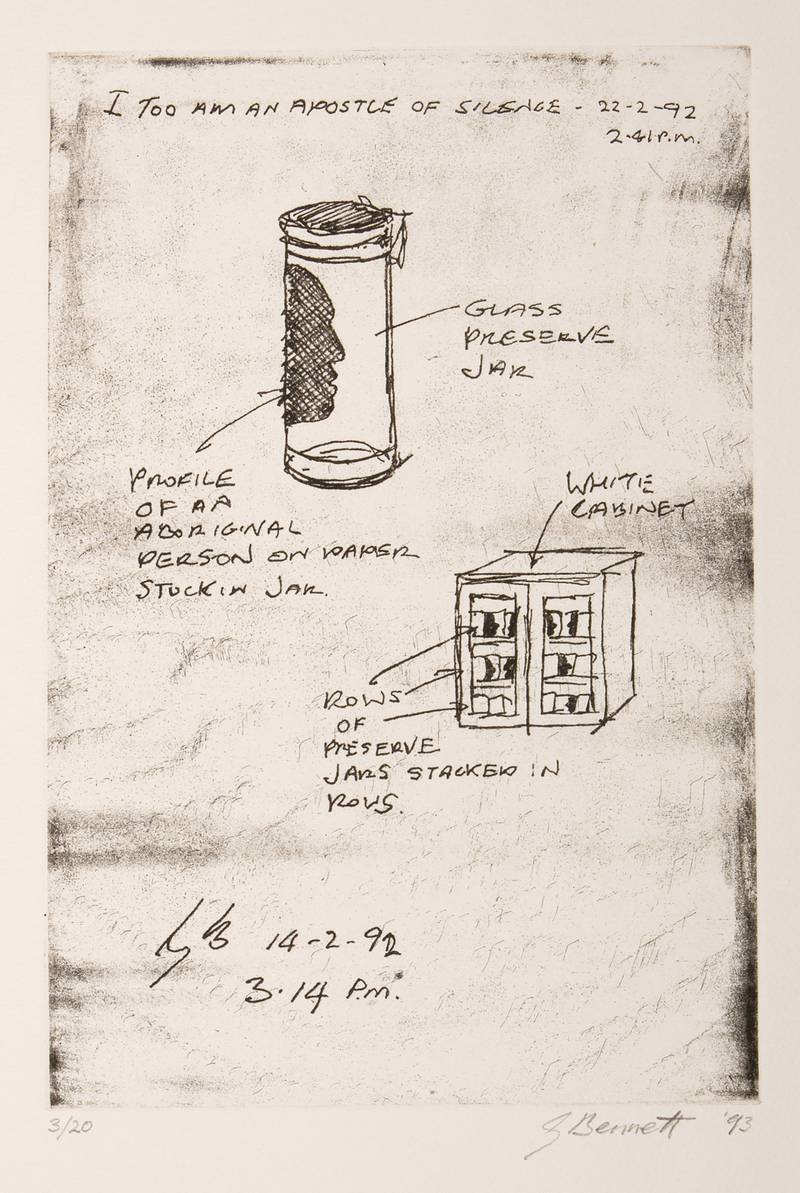 I TOO AM AN APOSTLE OF SILENCE - 22-2-92
2.41 P.M.
GLASS
PRESERVE
JAR
PROFILE
OF AN
ABORIGINAL
PERSON ON PAPER
STUCK IN JAR.
WHITE
CABINET
ROWS
OF
PRESERVE
JARS STACKED IN
ROWS.
GB 14-2-92
3.14 P.M.
3/20
G Bennett '93